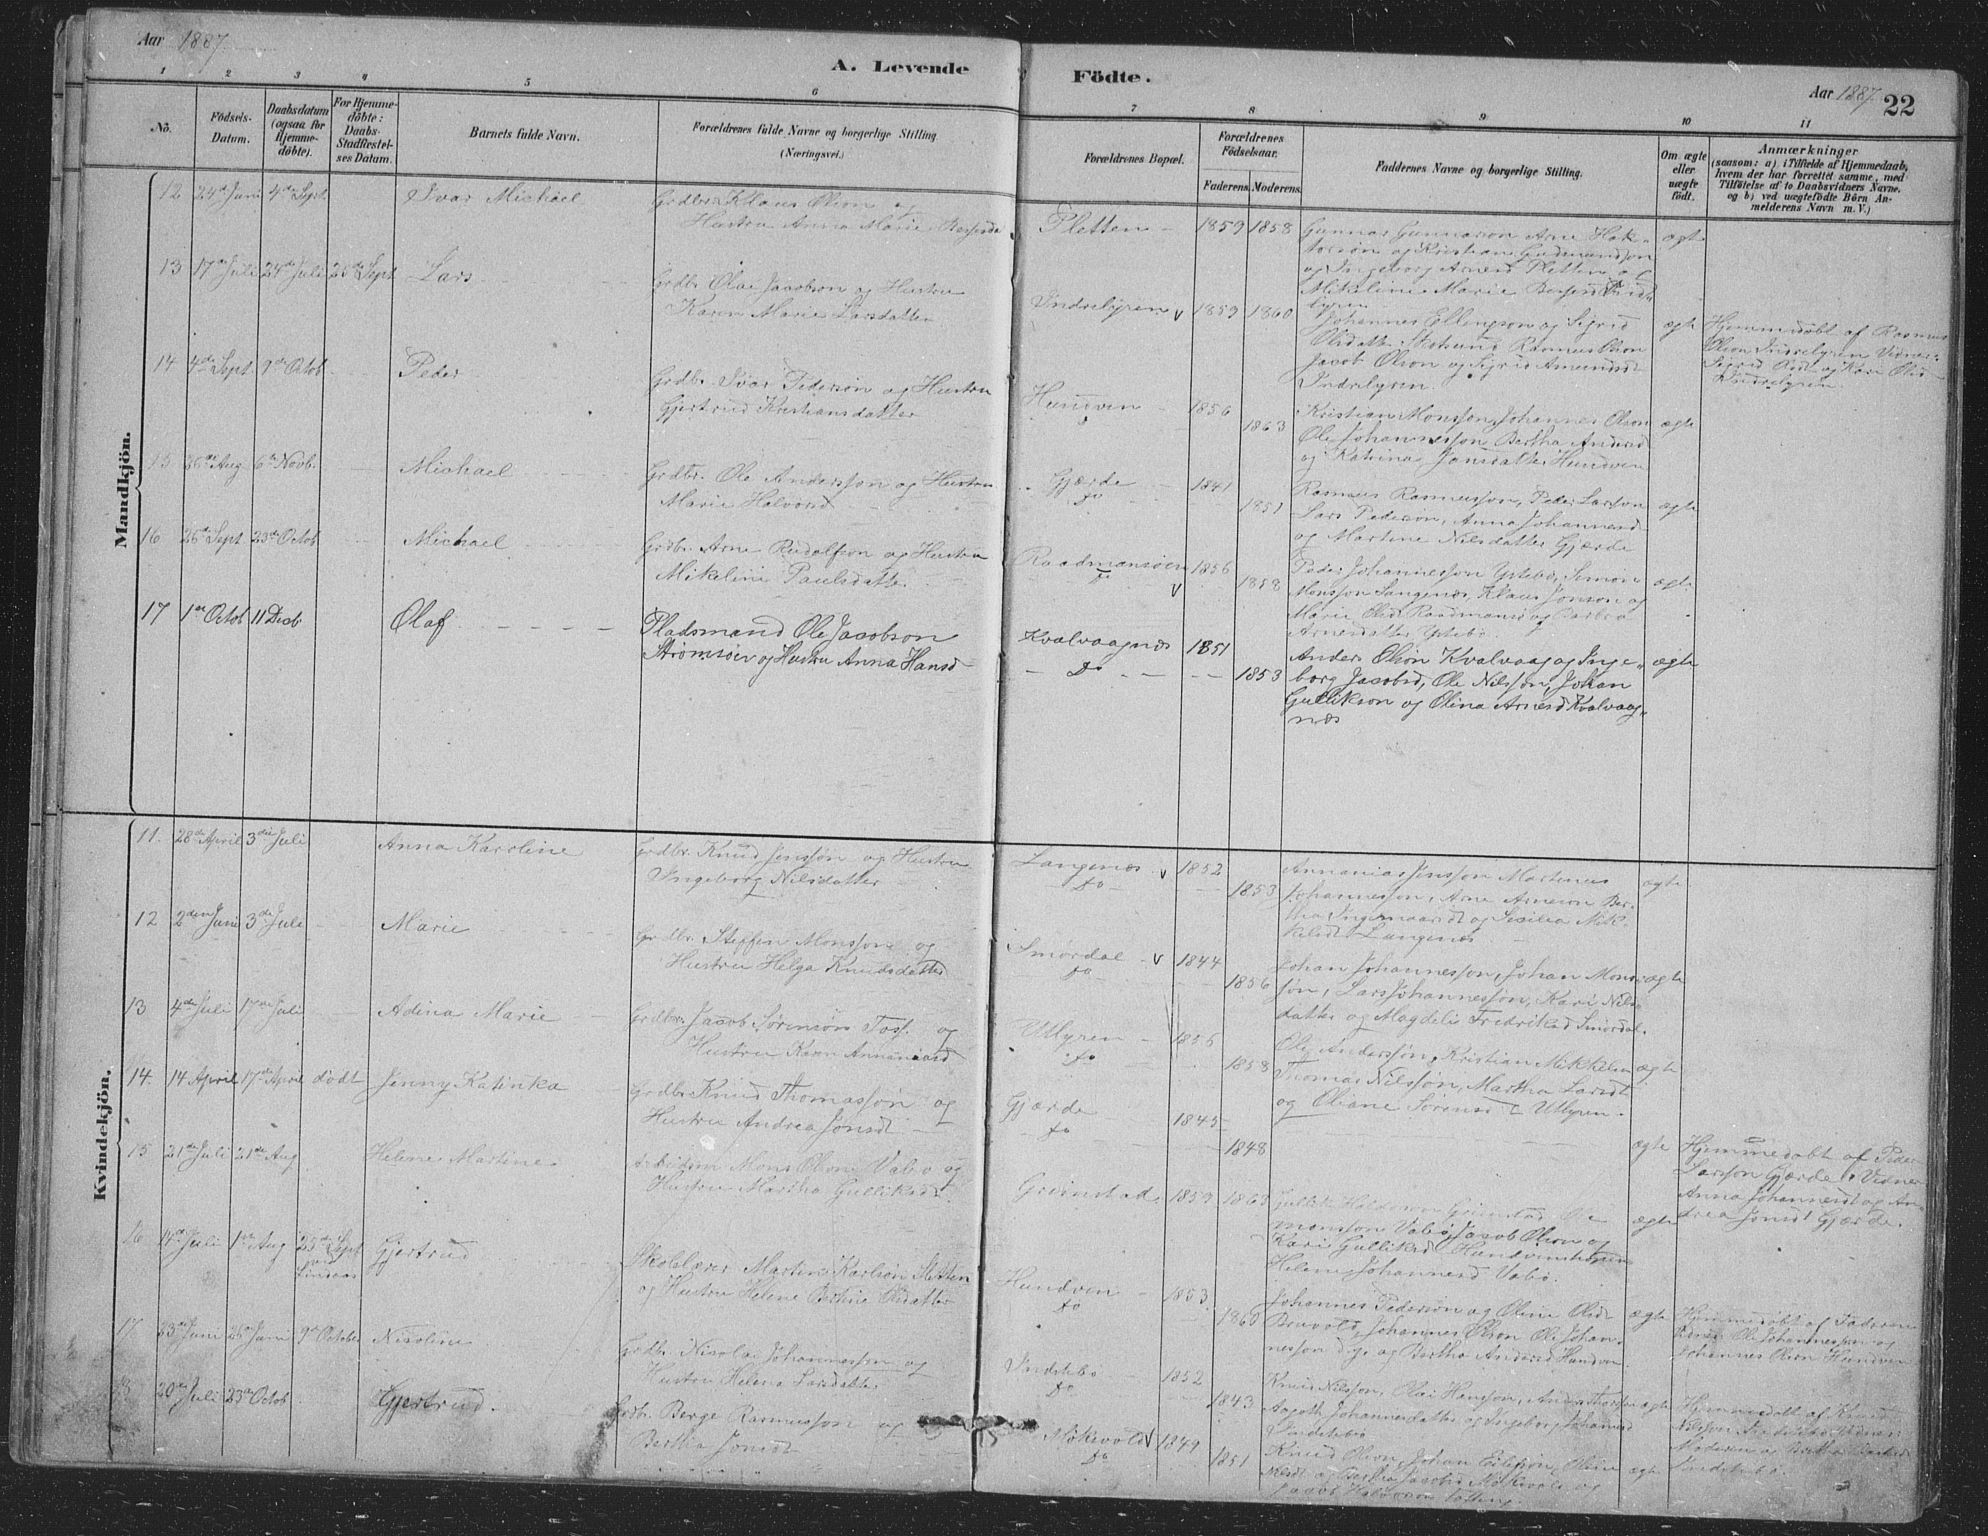 Aar 1887.
A. Levende
Födte.
Aar 1887. 22
1 2 3 4 5 6
7 8 9 10 11
No.
Födsels-
Datum.
Daabsdatum
(ogsaa for
Hjemme-
döbte).
For Hjemme-
döbte:
Daabs-
Stadfæstel-
ses Datum.
Barnets fulde Navn.
Forældrenes fulde Navne og borgerlige Stilling
(Næringsvei.)
Forældrenes Bopæl.
Forældrenes
Födselsaar.
Faderens. Moderens.
Faddernes Navne og borgerlige Stilling.
Om ægte
eller
uægte
födt.
Anmærkninger
(saasom: a) i Tilfælde af Hjemmedaab,
hvem der har forrettet samme, med
Tilföielse af to Daabsvidners Navne,
og b) ved uægtefödte Börn An-
melderens Navn m. V.)
Mandkjön.
12 24de Juni 4de Sept. Ivar Michael
Grdbr. Klaus Olson og
Hustru Anna Marie
Pletten 1859 1858
Gunnar Gunnarson Arne
og Kristian Gudmundson
og Ingeborg Arnesd Pletten
Mikeline Marie
ægte
13 17de Juli 24de Juli 25de Sept Lars
Grdbr. Olae Jacobson og Hustru
Karen Marie Larsdatter
Indrelyren 1859 1860
Johannes Ellingson og Sigrid
Olsdatter Rasmus Olson
Jacob Olson og Sigrid Amundsd
Indrelyren.
ægte
Hjemmedøbt af Rasmus
Olson Indrelyren Vidner:
Sigrid Olsd og Kari Olsd
Indrelyren
14 4de Sept. 9de Octob Peder
Grdbr. Ivar Pederson og Hustru
Gjertrud Kristiansdatter
Hundven 1856
do 1863
Kristian Monsson, Johannes Olson
Ole Johannesson, Bertha Andersd
og Katrina Jonsdatter Hundven
ægte
15 26de Aug 6te Novb. Michael
Grdbr. Ole Andersson og Hustru
Marie Halvorsd
Gjærde 1841
do 1851
Rasmus Rasmusson, Peder Larson
Lars Pederson, Anna Johannesd
og Martine Nilsdatter Gjærde
ægte
16 26de Sept 23de Octob Michael
Grdbr. Arne Rudolfson og Hustru
Mikeline Paulsdatter
Raadmansøen 1856
do 1858
Peder Johannesson Ystebø, Simon
Monsson Langenæs, Klaus Jonson og
Marie Olsd Raadmansø og Barbro
Arnesdatter Ystebø.
ægte
17 1ste Octob 11 Decb. Olaf
Pladsmand Ole Jacobson
Strømsøen og Hustru Anna Hansd
Kvalvaagnæs 1851
do 1853
Anders Olson Kvalvaag og Inge-
borg Jacobsd, Ole Nilsson, Johan
Gullikson og Olina Arnesd Kvalvaag-
næs
ægte
Kvindekjön.
11. 28de April 3die Juli Anna Karoline
Grdbr. Knud Jensson og Hustru
Ingeborg Nilsdatter
Langenæs 1852
do 1853
Annanias Jensson Martinus
Johannesson, Arne Arneson Ber-
tha Ingemaarsdt og Sesilia Mik-
kelsdt Langenæs
ægte
12 2den Juni 3die Juli Marie
Grdbr. Steffen Monsson og
Hustru Helga Knudsdatter
Smørdal 1844
do 1856
Johan Johannesson, Johan Mons-
søn, Lars Johannesson, Kari Nils-
datter og Magdeli Fredriksd Smørdal.
ægte
13 4de Juli 17de Juli Adina Marie
Grdbr. Jacob Sørenson Toss. og
Hustru Karen Annaniasd
Utlyren 1856
do 1858
Ole Andersson, Kristian Mikkelsen
Thomas Nilsson, Martha Larsdt
og Oliane Sørensd Utlyren.
ægte
14. 14 April 17de April dødt Jenny Katinka
Grdbr. Knud Thomasson og
Hustru Andrea Jonsdt
Gjærde 1845
do 1848
ægte
Hjemmedøbt af Peder
Larsson Gjærde. Vidner
Anna Johannesdt og An-
drea Jonsdt Gjærde.
15 21de Juli 21de Aug Helene Martine
Arbeidsm Mons Olson Vabø og
Hustru Martha Gulliksdt
Grinstad 1859 1863
Gullik Grinstad Ole
Monsson Vabø, Jacob Olson og
Kari Gulliksd Hundven
Helene Johannesd Vabø.
ægte
16 4de Juli 1ste Aug 25de Sept Gjertrud
Lindaas
Skolelærer Martin Karlson Sletten
og Hustru Helene Bertine Olsdatter
Hundven 1853
do 1860
Johannes Pederson og Oline Olsdt
Bruvold, Johannes Olson Ole Johan-
nesson og Bertha Andersd Hundven.
ægte
Hjemmedøbt af Faderen
Vidner Ole Johannesson og
Johannes Olson Hundven
17 23de Juni 26de Juni 9de Octobr Nicoline
Grdbr. Nicolai Johannesson og
Hustru Helena Larsdatter
Indstebø 1852
do 1843
Knud Nilsson, Olai Hansson, Anders Thorsson
Aagoth Johannesdatter og Ingeborg Johannesd
Indstebø
ægte
Hjemmedøbt af Knud
Nilsson Indstebø Vidner:
Moderen og Bertha
Indstebø.
18 20de Juli 23de Octob Gjertrud.
Grdbr. Berge Rasmusson og
Bertha Jonsdt
Møkevold 1849
do 1851
Knud Olson, Johan Oline
Nilsdt og Bertha Jacobsd Møkevold og
Jacob Halvorson
ægte